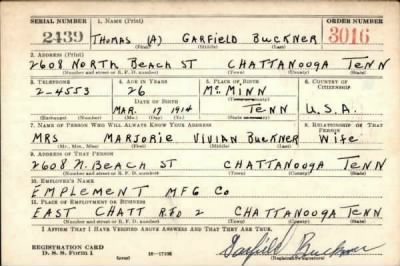 SERIAL NUMBER 1. NAME (Print) ORDER NUMBER
2439 THOMAS (A) GARFIELD BUCKNER 3016
(First) (Middle) (Last)
2. ADDRESS (Print)
2608 NORTH BEACH ST CHATTANOOGA TENN
(Number and street or R. F. D. number) (Town) (County) (State)
3. TELEPHONE 4. AGE IN YEARS 5. PLACE OF BIRTH 6. COUNTRY OF CITIZENSHIP
2-4553 26 Mc MINN
DATE OF BIRTH
MAR. 17 1914 TENN U.S.A.
(Mo.) (Day) (Yr.) (State or country)
7. NAME OF PERSON WHO WILL ALWAYS KNOW YOUR ADDRESS 8. RELATIONSHIP OF THAT PERSON
MRS MARJORIE VIVIAN BUCKNER WIFE
(Mr., Mrs., Miss) (First) (Middle) (Last)
9. ADDRESS OF THAT PERSON
2608 N. BEACH ST CHATTANOOGA TENN
(Number and street or R. F. D. number) (Town) (County) (State)
10. EMPLOYER'S NAME
EMPLEMENT MFG CO
11. PLACE OF EMPLOYMENT OR BUSINESS
EAST CHATT RFD 2 CHATTANOOGA TENN
(Number and street or R. F. D. number) (Town) (County) (State)
I AFFIRM THAT I HAVE VERIFIED ABOVE ANSWERS AND THAT THEY ARE TRUE.
REGISTRATION CARD
D. S. S. Form 1 Garfield Buckner
(Registrant's signature)